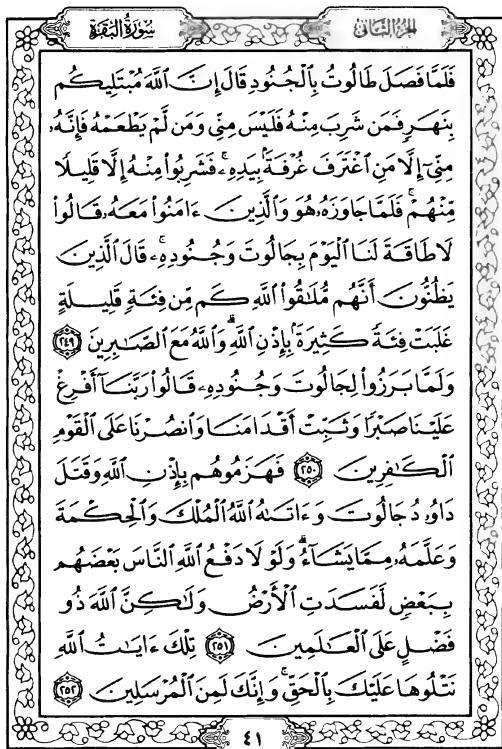 الجزء الثاني
سورة البقرة
فَلَمَّا فَصَلَ طَالُوتُ بِٱلْجُنُودِ قَالَ إِنَّ ٱللَّهَ مُبْتَلِيكُم
بِنَهَرٍ فَمَن شَرِبَ مِنْهُ فَلَيْسَ مِنِّى وَمَن لَّمْ يَطْعَمْهُ فَإِنَّهُۥ
مِنِّىٓ إِلَّا مَنِ ٱغْتَرَفَ غُرْفَةًۢ بِيَدِهِۦۚ فَشَرِبُوا۟ مِنْهُ إِلَّا قَلِيلًا
مِّنْهُمْۚ فَلَمَّا جَاوَزَهُۥ هُوَ وَٱلَّذِينَ ءَامَنُوا۟ مَعَهُۥ قَالُوا۟
لَا طَاقَةَ لَنَا ٱلْيَوْمَ بِجَالُوتَ وَجُنُودِهِۦۚ قَالَ ٱلَّذِينَ
يَظُنُّونَ أَنَّهُم مُّلَٰقُوا۟ ٱللَّهِ كَم مِّن فِئَةٍ قَلِيلَةٍ
غَلَبَتْ فِئَةً كَثِيرَةًۢ بِإِذْنِ ٱللَّهِۗ وَٱللَّهُ مَعَ ٱلصَّٰبِرِينَ ٢٤٩
وَلَمَّا بَرَزُوا۟ لِجَالُوتَ وَجُنُودِهِۦ قَالُوا۟ رَبَّنَآ أَفْرِغْ
عَلَيْنَا صَبْرًا وَثَبِّتْ أَقْدَامَنَا وَٱنصُرْنَا عَلَى ٱلْقَوْمِ
ٱلْكَٰفِرِينَ ٢٥٠ فَهَزَمُوهُم بِإِذْنِ ٱللَّهِ وَقَتَلَ
دَاوُۥدُ جَالُوتَ وَءَاتَىٰهُ ٱللَّهُ ٱلْمُلْكَ وَٱلْحِكْمَةَ
وَعَلَّمَهُۥ مِمَّا يَشَآءُۗ وَلَوْلَا دَفْعُ ٱللَّهِ ٱلنَّاسَ بَعْضَهُم
بِبَعْضٍ لَّفَسَدَتِ ٱلْأَرْضُ وَلَٰكِنَّ ٱللَّهَ ذُو
فَضْلٍ عَلَى ٱلْعَٰلَمِينَ ٢٥١ تِلْكَ ءَايَٰتُ ٱللَّهِ
نَتْلُوهَا عَلَيْكَ بِٱلْحَقِّۚ وَإِنَّكَ لَمِنَ ٱلْمُرْسَلِينَ ٢٥٢
٤١